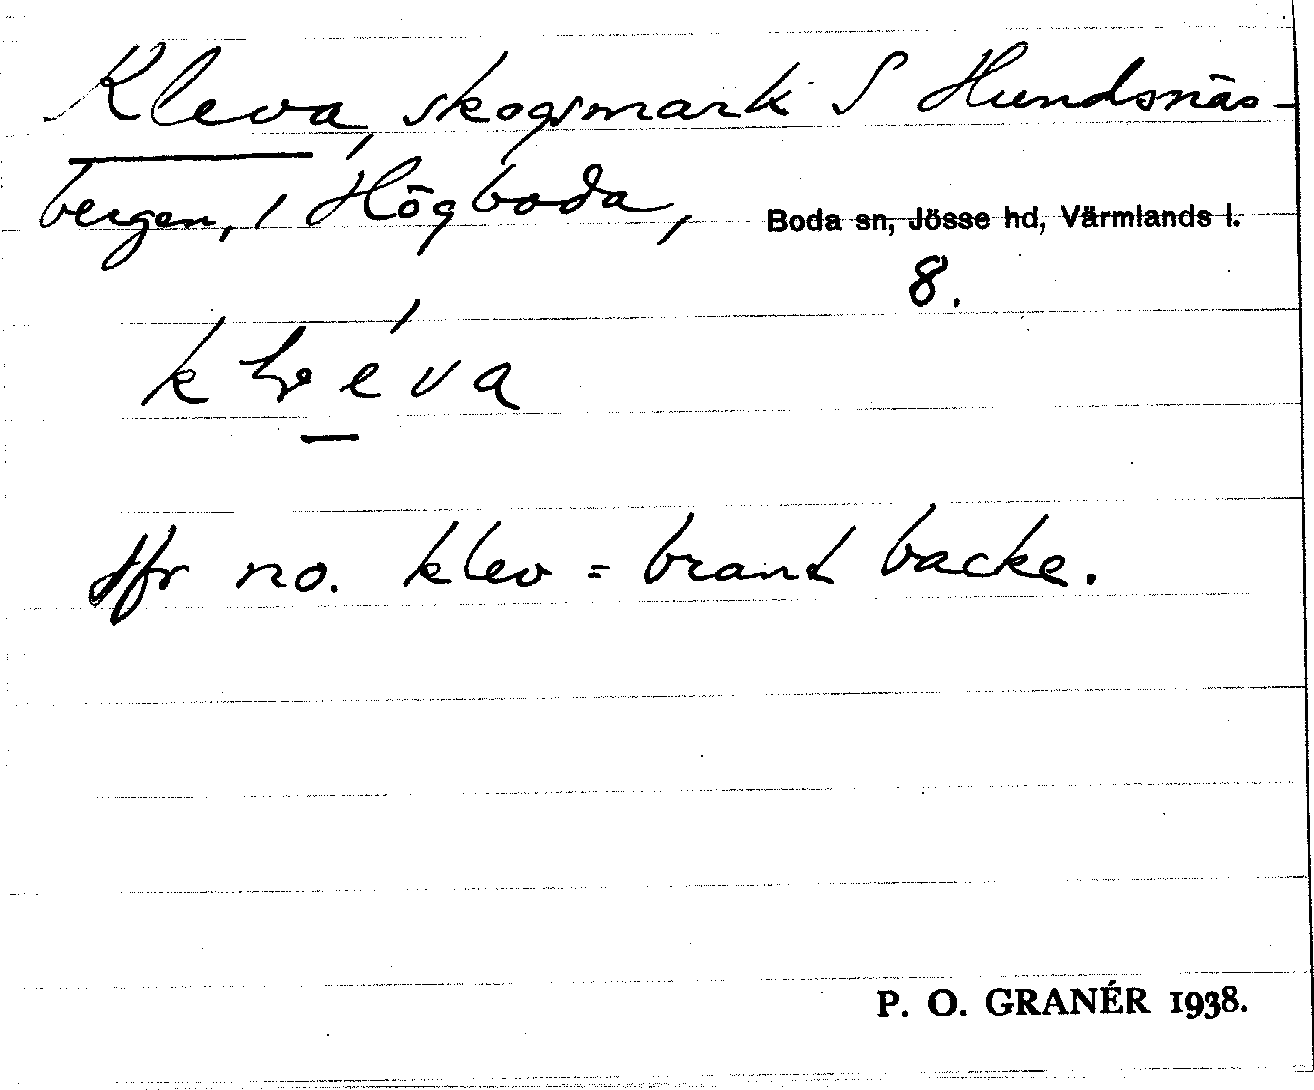 Kleva, skogsmark S Hundsnäs-
bergen, 1 Högboda, Boda sn, Jösse hd, Värmlands l.
8.
Jfr no. klev = brant backe.
P. O. GRANÉR 1938.